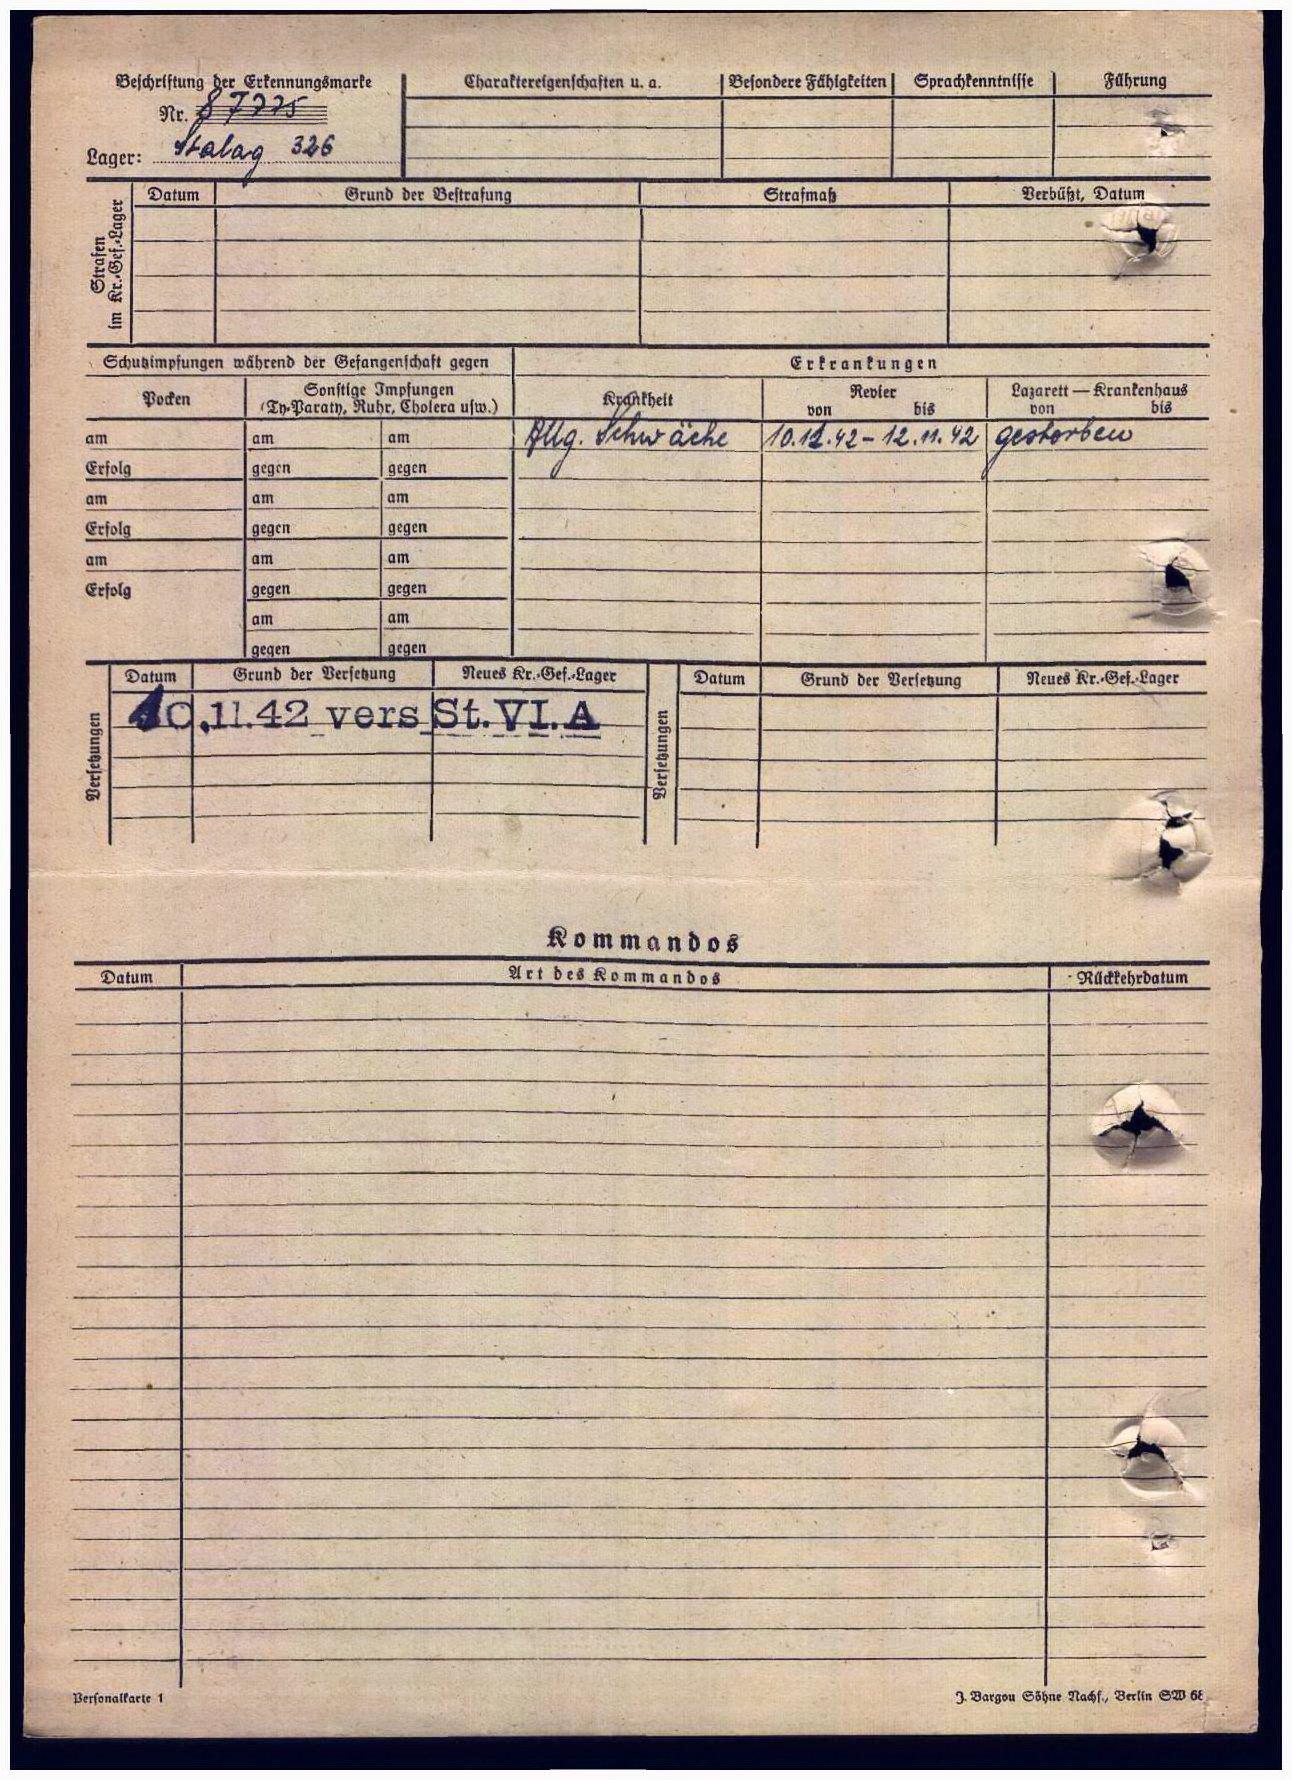 Beschriftung der Erkennungsmarke
Nr. 87775
Lager: Stalag 326
Charaktereigenschaften u. a. Besondere Fähigkeiten Sprachkenntnisse Führung
Strafen
im Kr.-Gef.-Lager
Datum Grund der Bestrafung Strafmaß Verbüßt, Datum
Schutzimpfungen während der Gefangenschaft gegen Erkrankungen
Pocken
Sonstige Impfungen
(Ty-Paraty, Ruhr, Cholera usw.)
Krankheit
Revier
von bis
Lazarett — Krankenhaus
von bis
am am am Allg. Schwäche 10.11.42 - 12.11.42 gestorben
Erfolg gegen gegen
am am am
Erfolg gegen gegen
am am am
Erfolg gegen gegen
am am
gegen gegen
Versetzungen
Datum Grund der Versetzung Neues Kr.-Gef.-Lager
10.11.42 vers St. VI. A
Versetzungen
Datum Grund der Versetzung Neues Kr.-Gef.-Lager
Kommandos
Datum Art des Kommandos Rückkehrdatum
Personalkarte 1
J. Bargou Söhne Nachf., Berlin SW 68